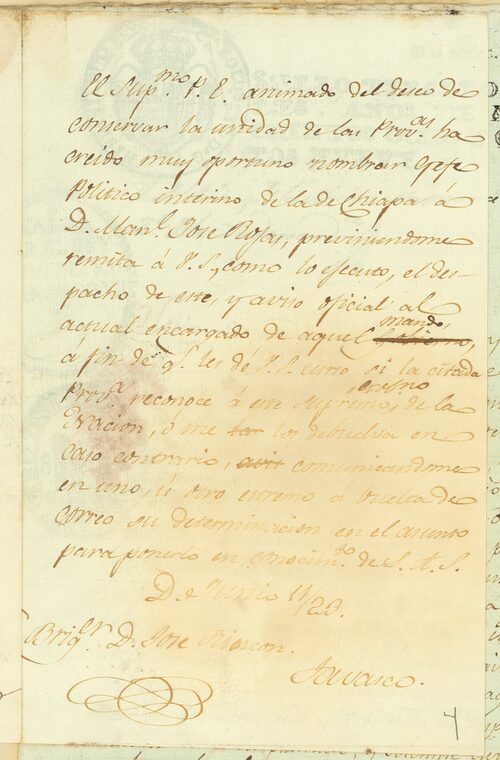 El Sup.mo P. E. animado del deseo de
conservar la unidad de las Prov.as ha
creido muy oportuno nombrar Gefe
Politico interino de la de Chiapa á
D. Man.l Jose Rojas, previniendome
remita á V. S., como lo efecuto, el des-
pacho de este, y aviso oficial al
actual encargado de aquel mando,
á fin de q.e les dé V. S. curso si la citada
Prov.a reconoce á este Supremo, de la
Nacion, ó me los debuelva en
caso contrario, comunicandome
en uno, ú otro extremo á buelta de
correo su determinacion en el asunto
para ponerlo en conocim.to de S. A. S.
D. e Junio 11/23.
Brig.er D. Jose Rincon.
Tavasco.
4